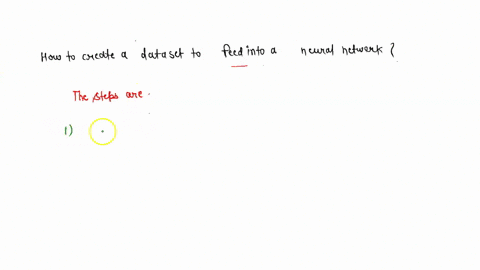 How to create a dataset to feed into a neural network?
The steps are.
1)